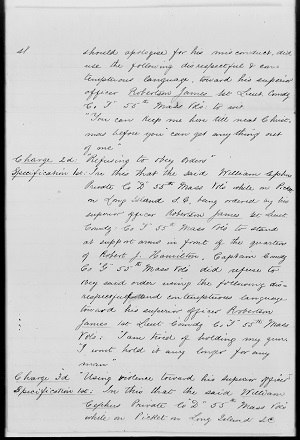 should apologise for his misconduct, did
use the following disrespectful & con-
temptuous language, toward his superior
officer Robertson James, 1st Lieut. Comdg
Co. "F" 55th Mass Vols to wit
"You can keep me here till next Christ-
mas before you can get anything out
of me"
Charge 2d "Refusing to obey Orders"
Specification 1st: In this that the said William Cephus
Private Co "D" 55th Mass Vols while on Picket
on Long Island S.C. being ordered by his
superior officer Robertson James 1st Lieut
Comdg Co "F" 55th Mass Vols to stand
at support arms in front of the quarters
of Robert J. Hamilton, Captain Comdg
Co "G" 55th Mass Vols did refuse to
obey said order using the following dis-
respectful and contemptuous language
toward his superior officer Robertson
James 1st Lieut Comdg Co. "F" 55th Mass
Vols: "I am tired of holding my gun
I wont hold it any longer for any
man"
Charge 3d "Using violence toward his superior officer"
Specification 1st: In this that the said William
Cephus Private Co "D" 55th Mass Vols
while on Picket on Long Island S.C